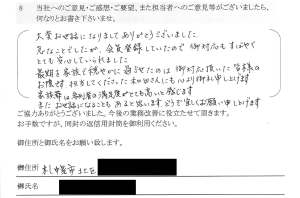 8 当社へのご意見・ご感想・ご要望、また担当者へのご意見等がございましたら、
何なりとお書き下さいませ。
大変お世話になりましてありがとうございました。
急なことでしたが、会員登録していたので御対応もすばやく
とても安心していられました
最期を家族で穏やかに過ごせたのは御対応頂いた皆様の
お陰様、担当してくださった 心より御礼申し上げます
家族葬は 満足度がとても高いと感じます
またお世話になることもあると思います。どうぞ宜しくお願い申し上げます
ご協力ありがとうございました。今後の業務改善に役立たせて頂きます。
お手数ですが、同封の返信用封筒を御利用ください。
御住所と御氏名をお願い致します。
御住所 札幌市
御氏名